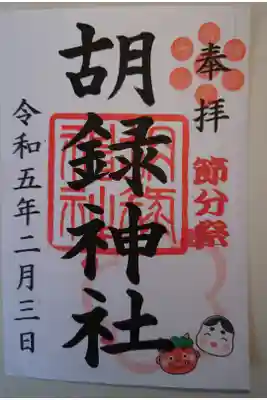 奉拝
節分祭
胡録神社
令和五年二月三日